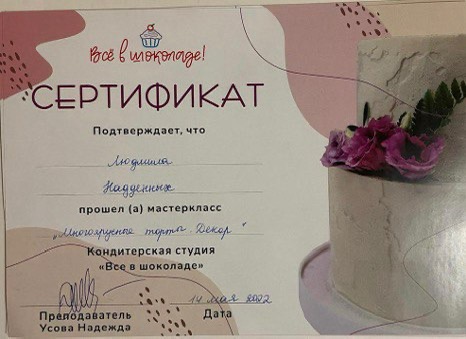 Всё в шоколаде!
СЕРТИФИКАТ
Подтверждает, что
Людмила
Надденных
прошел (а) мастеркласс
„Многоярусные торты. Декор"
Кондитерская студия
«Все в шоколаде»
14 мая 2022
Преподаватель Дата
Усова Надежда